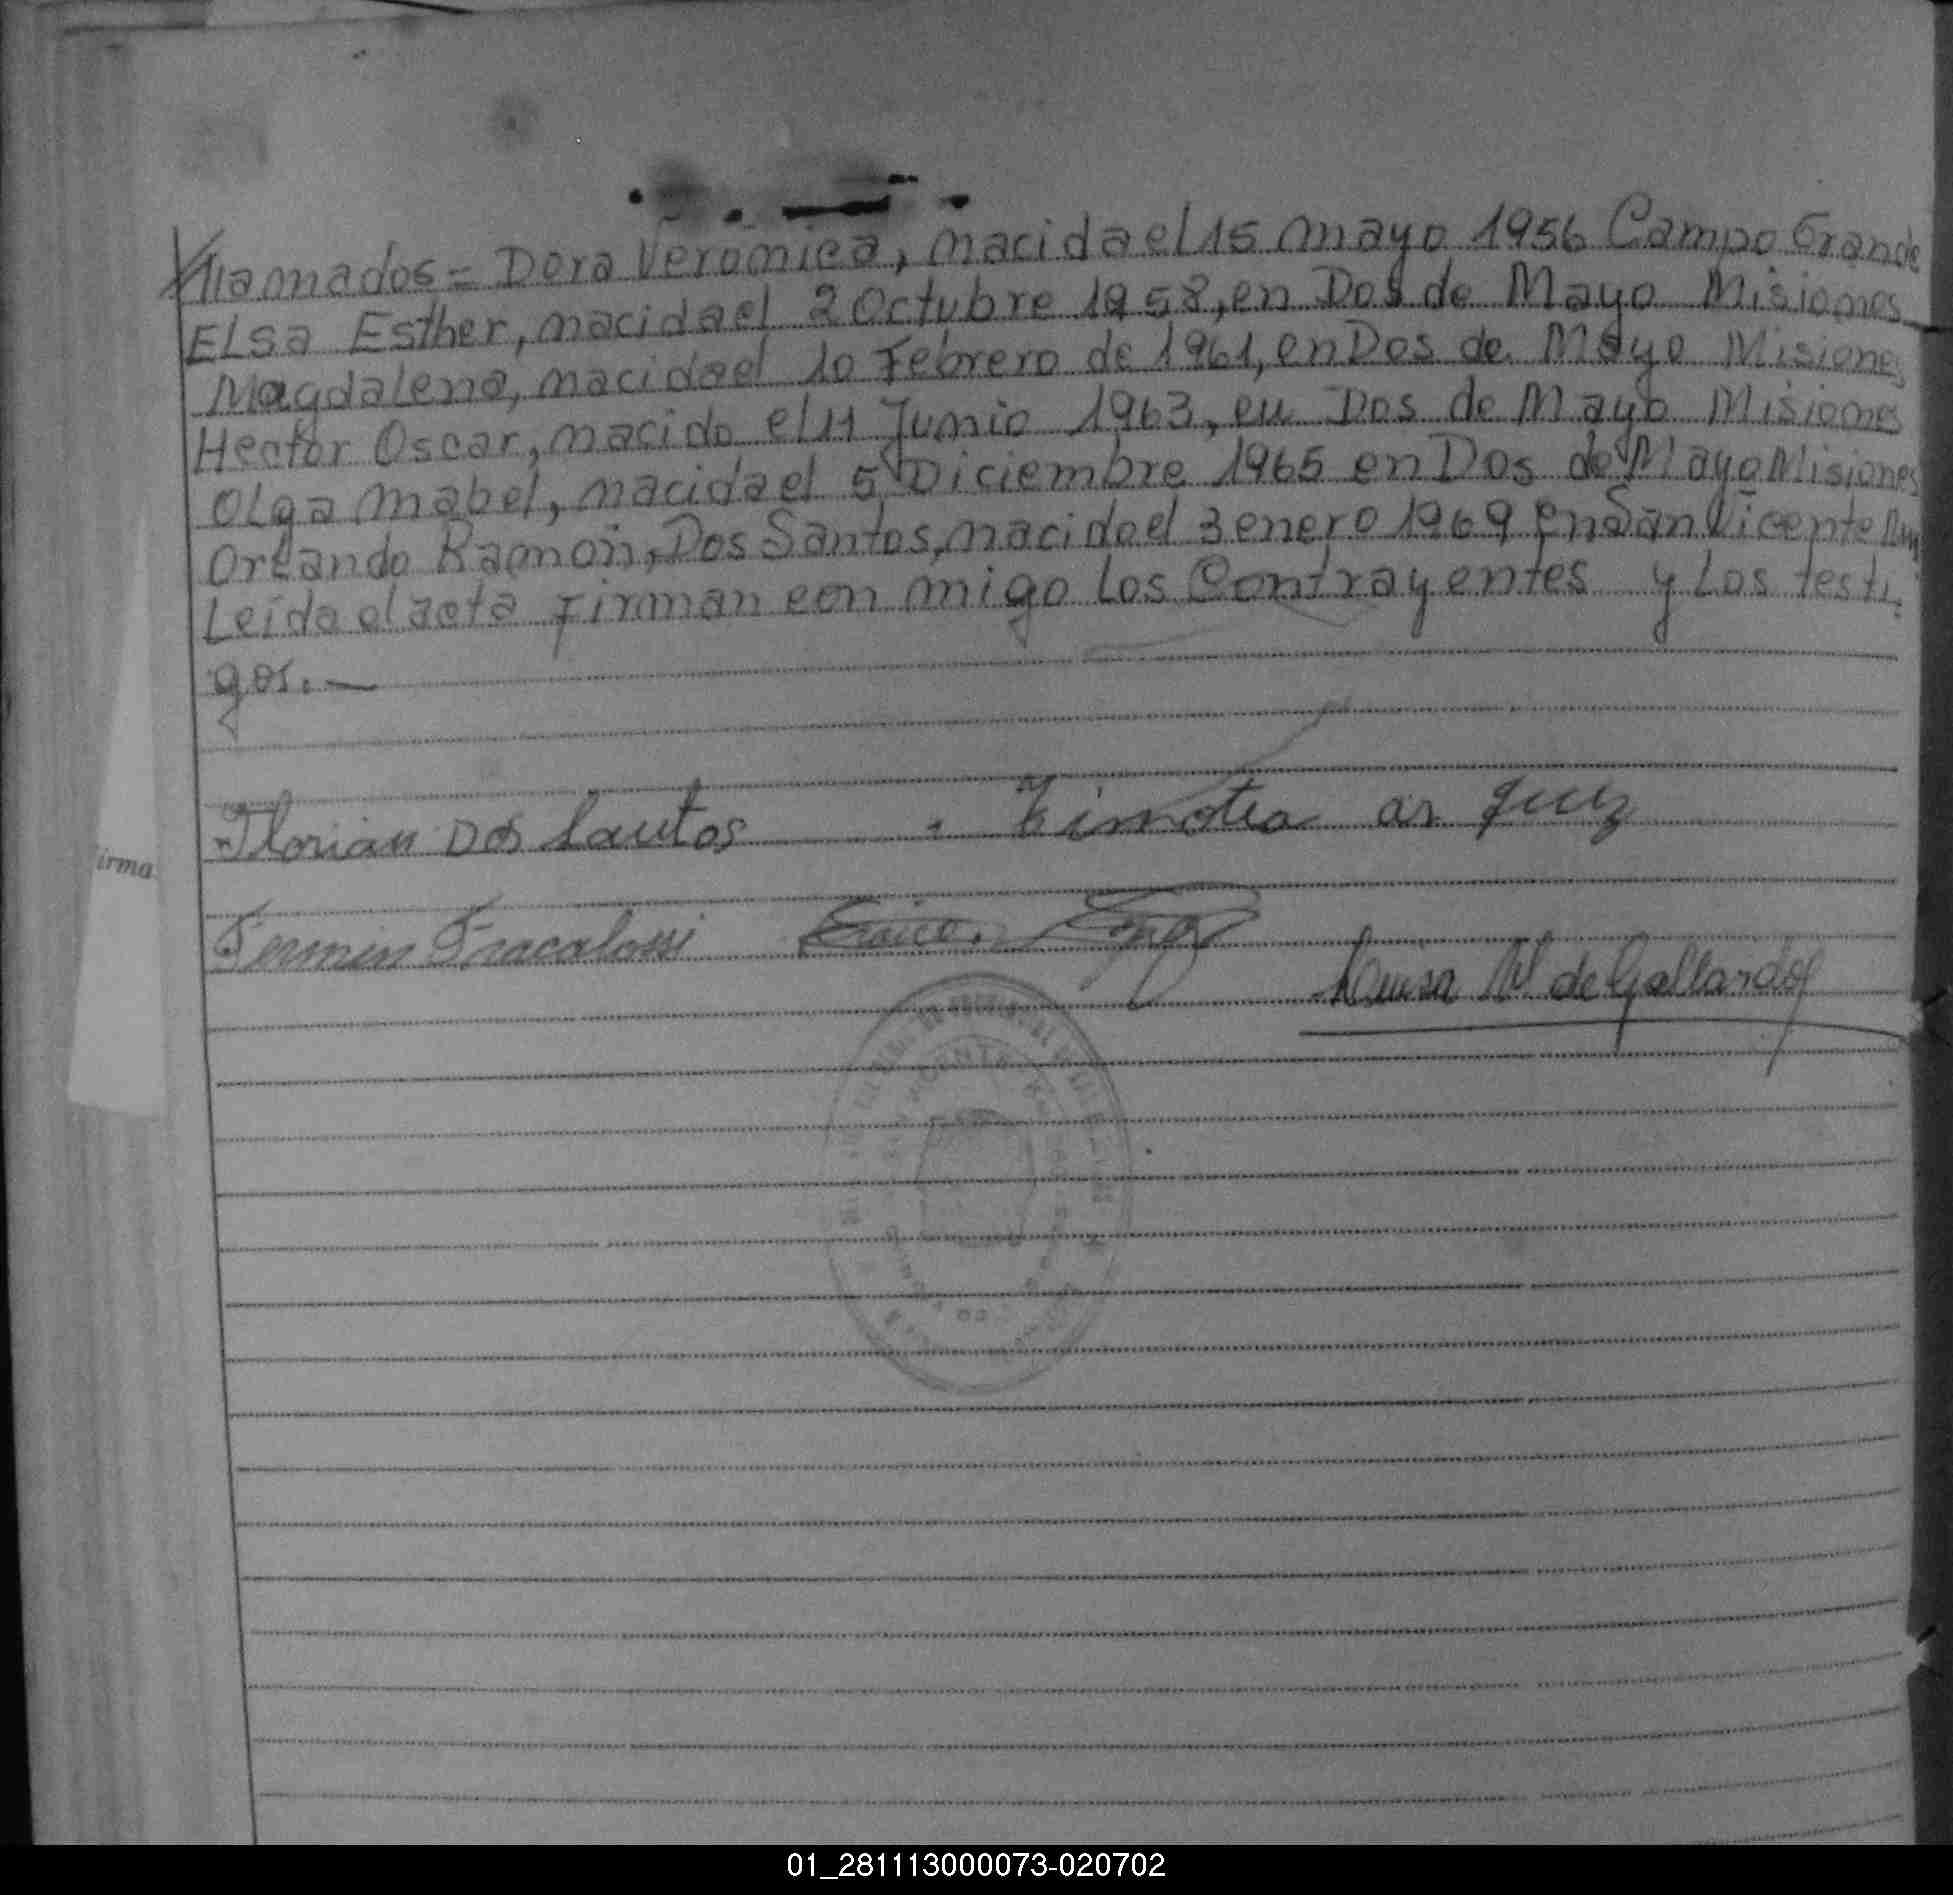 llamados = Dora Veronica, nacida el 15 mayo 1956 Campo Grande
Elsa Esther, nacida el 2 Octubre 1958, en Dos de Mayo Misiones
Magdalena, nacida el 10 Febrero de 1961, en Dos de Mayo Misiones
Hector Oscar, nacido el 11 Junio 1963, en Dos de Mayo Misiones
Olga Mabel, nacida el 5 Diciembre 1965 en Dos de Mayo Misiones
Orlando Ramón, Dos Santos, nacido el 3 enero 1969 en San Vicente
Leída el acta firman con migo los Contrayentes y los testi
gos. —
Florian Dos Santos
Timotea
irma
Fermin Fracalossi
Luisa M de Gallardo
01_281113000073-020702